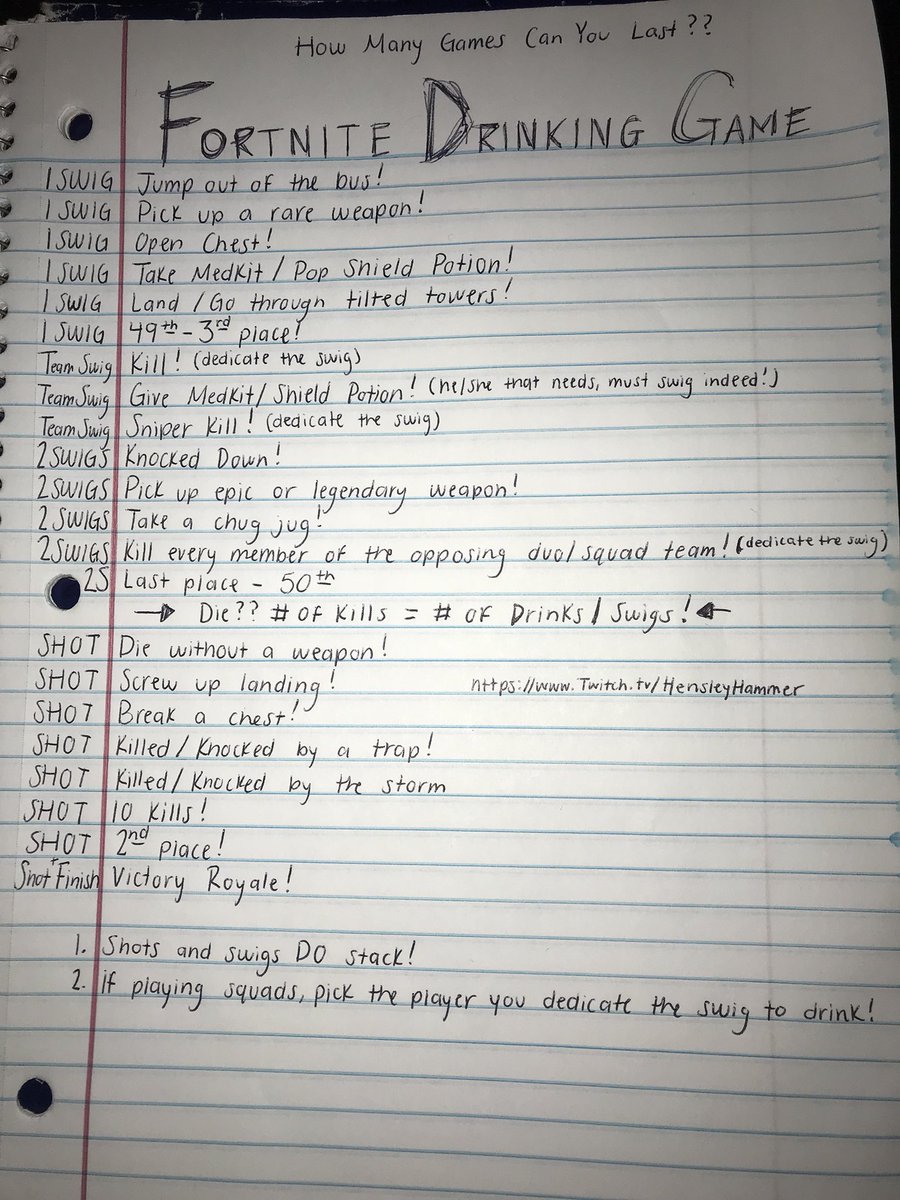 How Many Games Can You Last??
FORTNITE DRINKING GAME
1 SWIG Jump out of the bus!
1 SWIG Pick up a rare weapon!
1 SWIG Open Chest!
1 SWIG Take Medkit / Pop Shield Potion!
1 SWIG Land / Go through tilted towers!
1 SWIG 49th - 3rd place!
Team Swig Kill! (dedicate the swig)
Team Swig Give Medkit/Shield Potion! (he/she that needs, must swig indeed!)
Team Swig Sniper Kill! (dedicate the swig)
2 SWIGS Knocked Down!
2 SWIGS Pick up epic or legendary weapon!
2 SWIGS Take a chug jug!
2 SWIGS Kill every member of the opposing duo/squad team! (dedicate the swig)
2S Last place - 50th
→ Die?? # of Kills = # of Drinks / Swigs! ←
SHOT Die without a weapon!
SHOT Screw up landing! https://www.Twitch.tv/HensleyHammer
SHOT Break a chest!
SHOT Killed / Knocked by a trap!
SHOT Killed / Knocked by the storm
SHOT 10 Kills!
SHOT 2nd Place!
Shot + Finish Victory Royale!
1. Shots and swigs DO stack!
2. if playing squads, pick the player you dedicate the swig to drink!